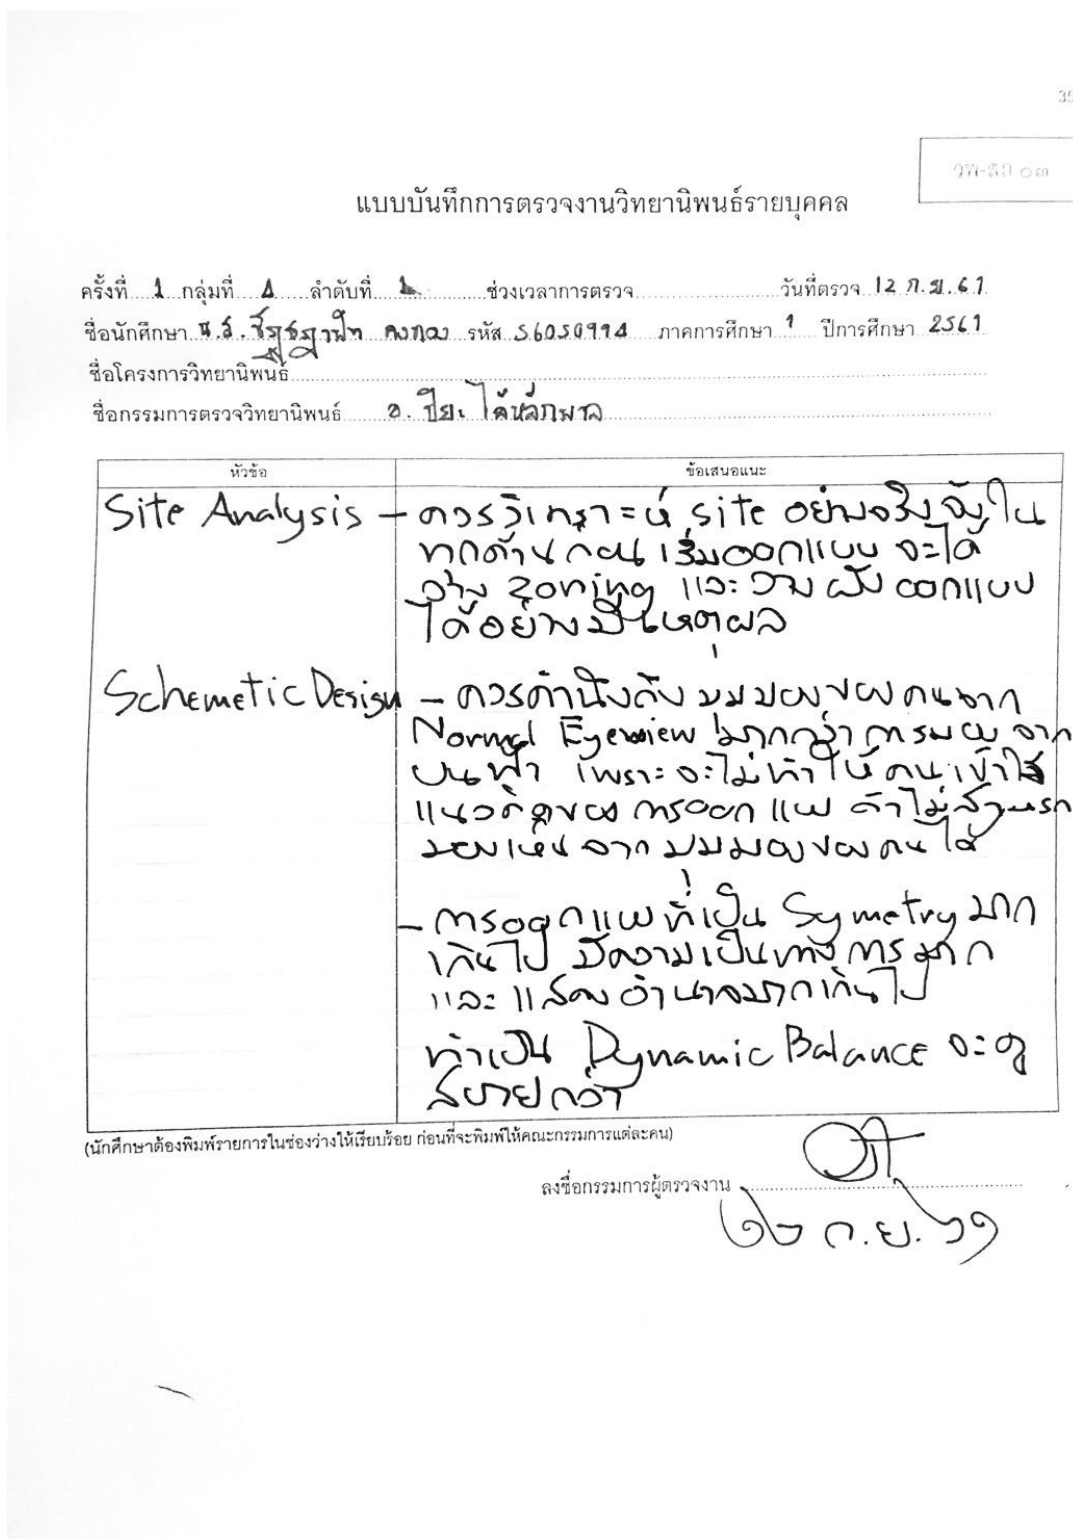 35
วพ-สถ ๐๓
แบบบันทึกการตรวจงานวิทยานิพนธ์รายบุคคล
ครั้งที่ 1 กลุ่มที่ ลำดับที่ ช่วงเวลาการตรวจ วันที่ตรวจ 12 ก.ย. 61
ชื่อนักศึกษา น.ส. รหัส ภาคการศึกษา 1 ปีการศึกษา 2561
ชื่อโครงการวิทยานิพนธ์
ชื่อกรรมการตรวจวิทยานิพนธ์ อ. ปิยะ
หัวข้อ ข้อเสนอแนะ
Site Analysis - ควรวิเคราะห์ site อย่างจริงจังใน
ทุกด้านก่อนเริ่มออกแบบ จะได้
วาง zoning และวางผังออกแบบ
ได้อย่างมีเหตุผล
Schemetic Design - ควรคำนึงถึงมุมมองของคนจาก
Normal Eyeview มากกว่าการมองจาก
บนฟ้า เพราะจะไม่ทำให้คนเข้าใจ
แนวคิดของการออกแบบ ถ้าไม่สามารถ
มองเห็นจากมุมมองของคนได้
- การออกแบบที่เป็น Symetry มาก
เกินไป มีความเป็นทางการมาก
และแสดงอำนาจมากเกินไป
ทำเป็น Dynamic Balance จะดู
สบายกว่า
(นักศึกษาต้องพิมพ์รายการในช่องว่างให้เรียบร้อย ก่อนที่จะพิมพ์ให้คณะกรรมการแต่ละคน)
ลงชื่อกรรมการผู้ตรวจงาน
๑๒ ก.ย. ๖๑